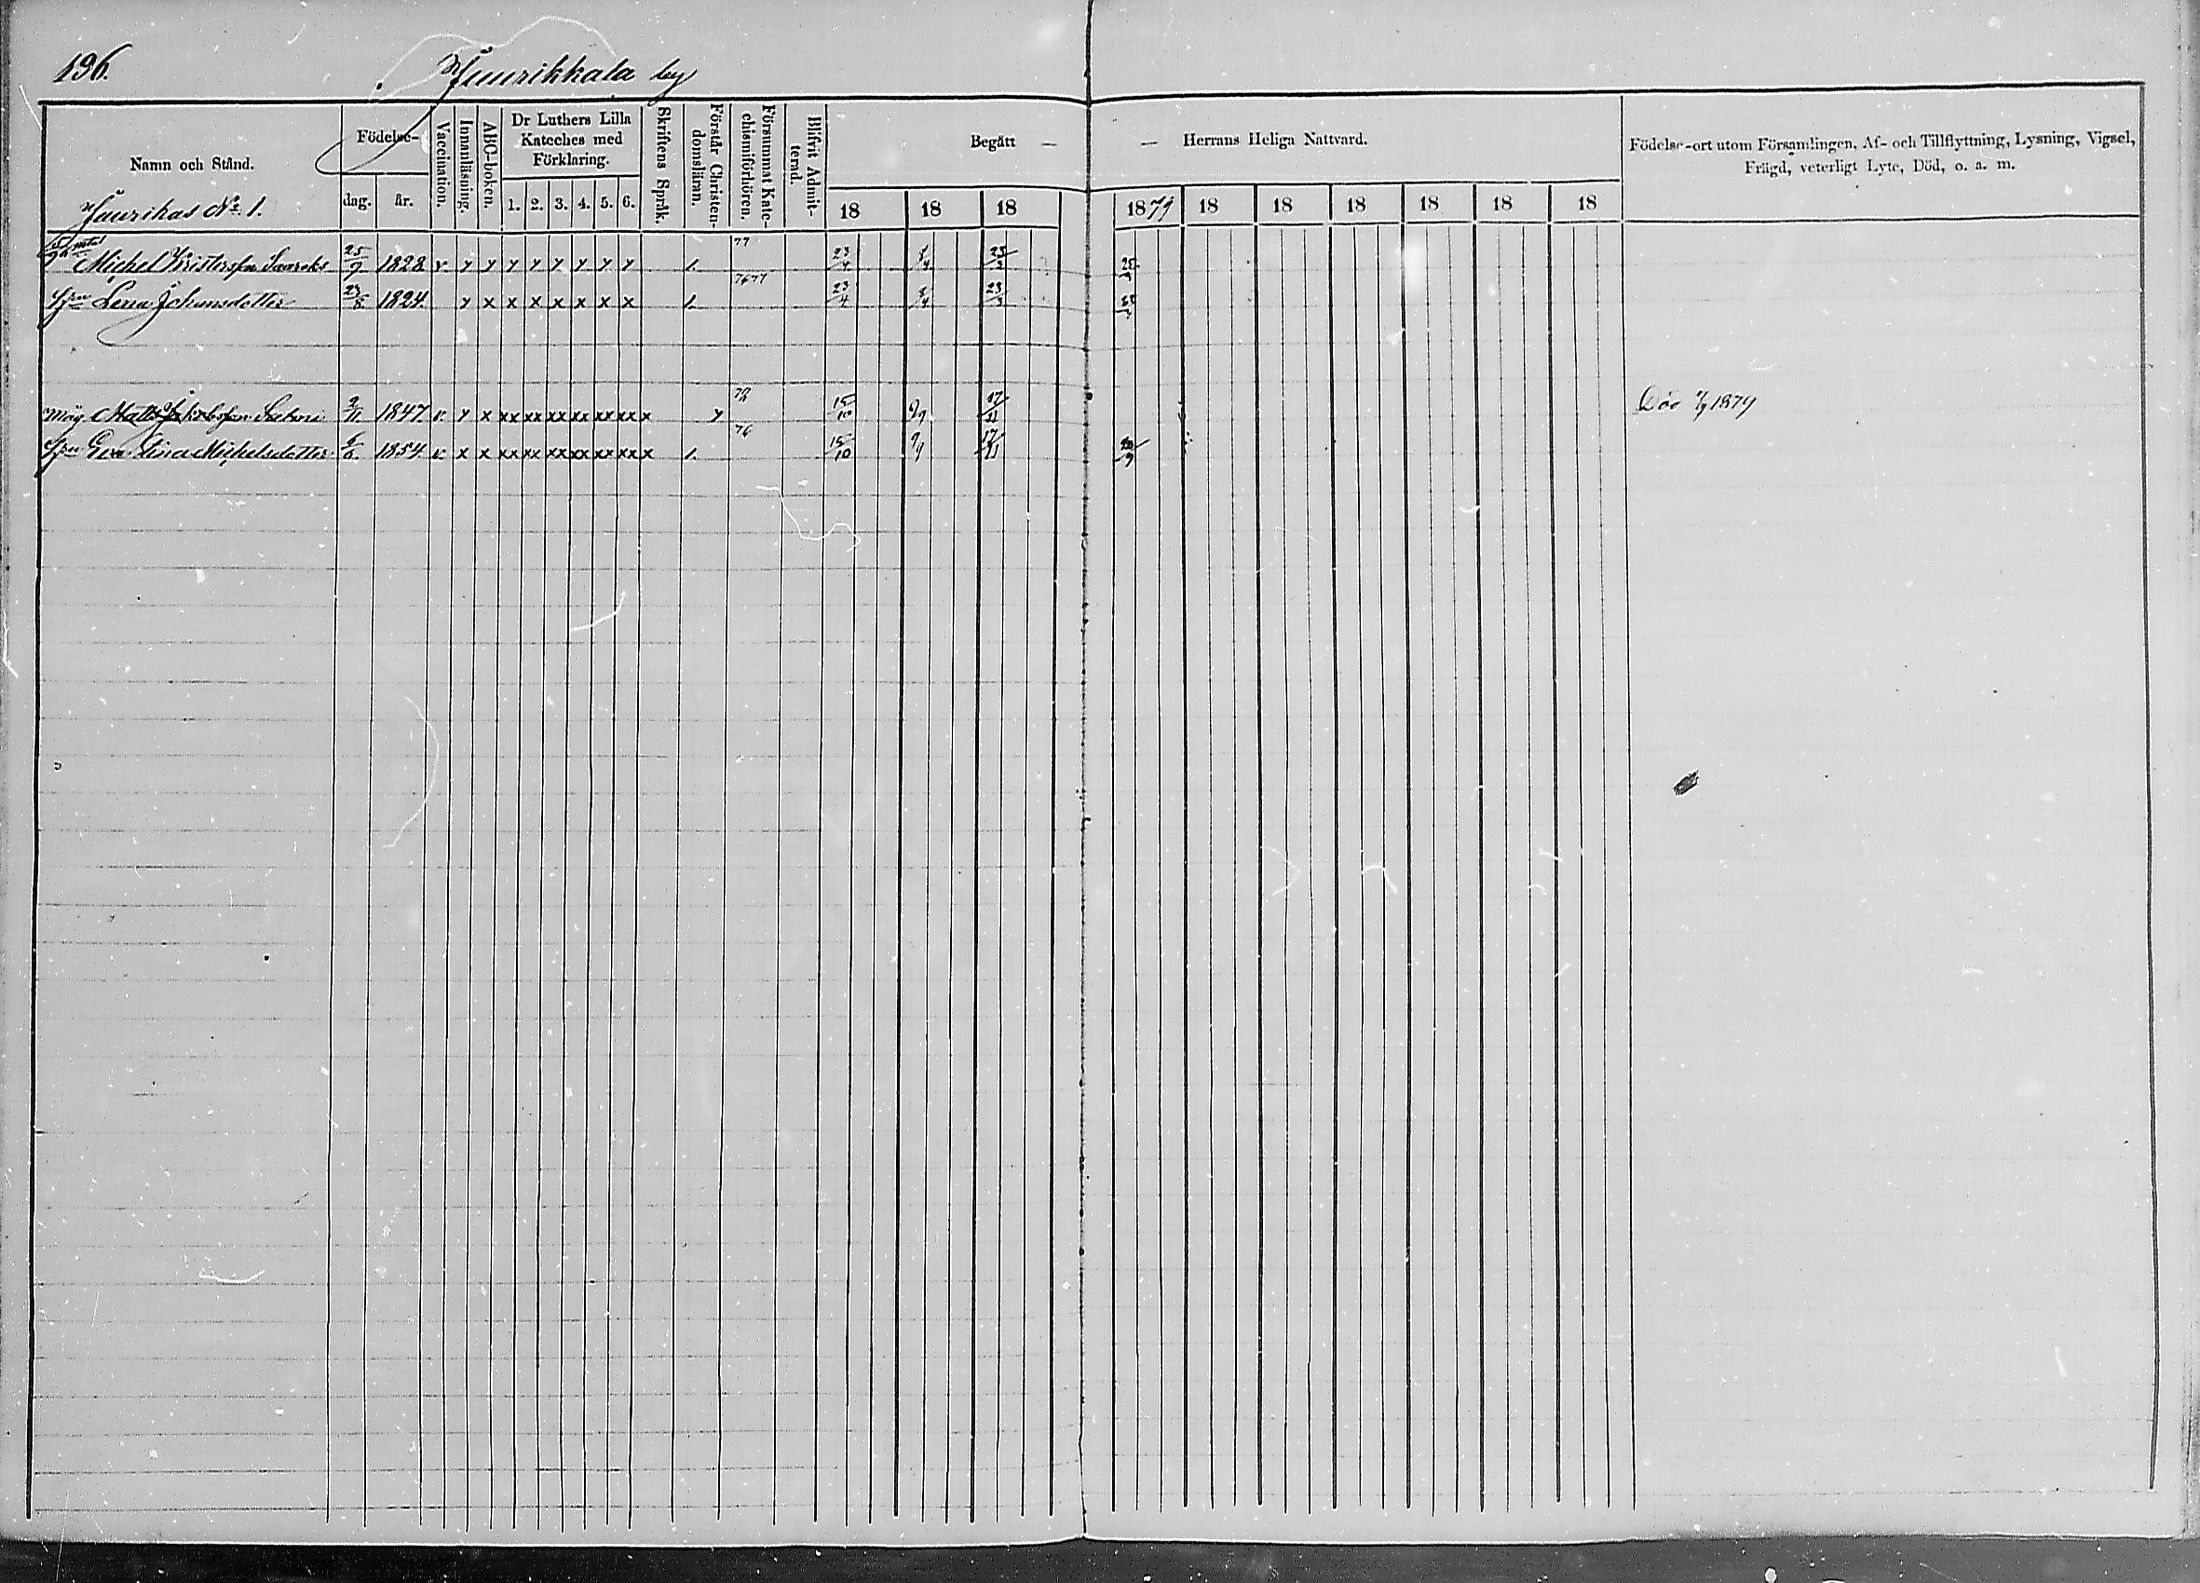 196.
Juurikkala by
Namn och Stånd.
Födelse-
dag.
år.
Vaccination.
Innanläsning.
ABC-boken.
Dr Luthers Lilla
Kateches med
Förklaring.
1. 2. 3. 4. 5. 6.
Skriftens Språk.
Förstår Christen-
domsläran.
Försummat Kate-
chismiförhören.
Blifvit Admit-
terad.
Begått —
— Herrans Heliga Nattvard.
18 18 18 1879 18 18 18 18 18 18
Födelse-ort utom Församlingen, Af- och Tillflyttning, Lysning, Vigsel,
Frägd, veterligt Lyte, Död, o. a. m.
Juurikas No 1.
Michel Kristersson 25/9 1828 v y y y y y y y y 1. 77 23/4
Hn Lena Johansdotter 1824. y x x x x x x x 1. 76 77 23/4 23/3
Måg. Matts Jakobsson 1847. v. y x xx xx xx xx xx xx x y 15/10 Död 1879
Hn Eva Lina Michelsdotter 1854 v. x x xx xx xx xx xx xx x 1. 76 15/10